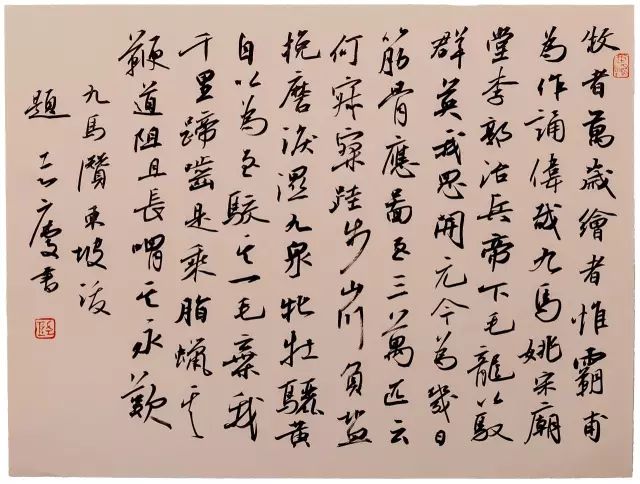 牧者萬歲繪者惟霸甫
為作誦偉哉九馬姚宋廟
堂李郭治兵帝下毛龍以馭
群英我思開元今為幾日
筋骨應圖至三萬匹云
何寂寥跬步山川負鹽
挽磨淚濕九泉牝牡驪黃
自以為至駿其一毛棄我
千里蹄嚙是乘脂蠟其
鞭道阻且長喟其永歎
九馬讚東坡後
題 書